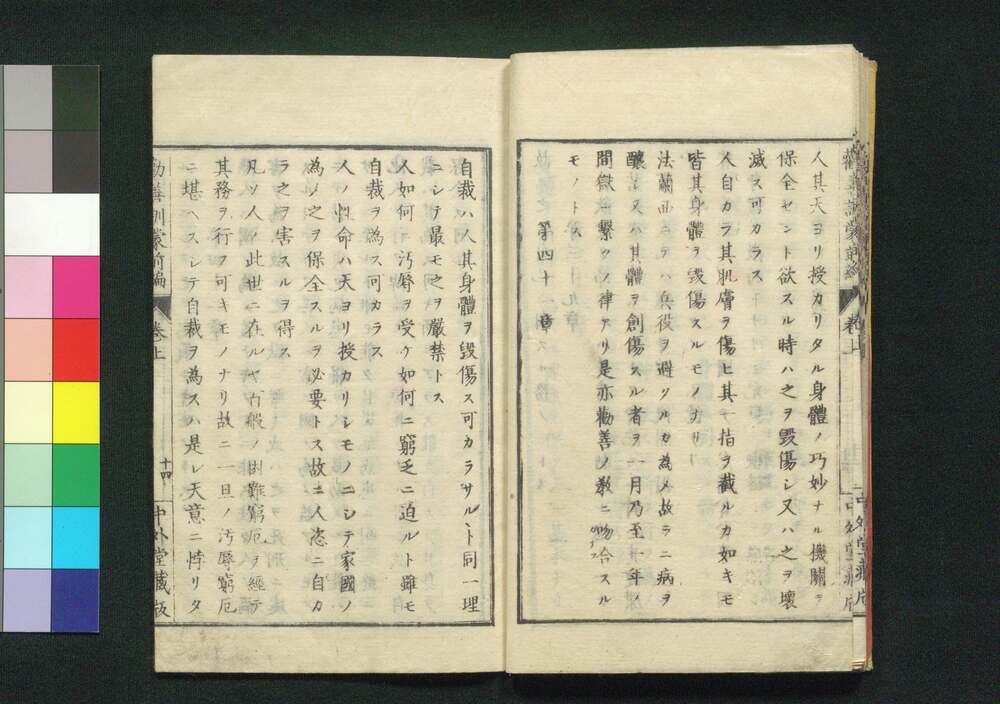 人其天ヨリ授カリタル身體ノ巧妙ナル機關ヲ
保全セント欲スル時ハ之ヲ毀傷シ又ハ之ヲ壞
滅ス可カラス
人自カラ其肌膚ヲ傷ヒ其一指ヲ截ルカ如キモ
皆其身體ヲ毀傷スルモノナリ
法蘭西ニテハ兵役ヲ避クルカ為メ故ラニ病ヲ
釀シ又ハ其體ヲ創傷スル者ヲ一月乃至一年ノ
間獄ニ繫クノ律アリ是亦勸善ノ教ニ吻合スル
モノトス
第四十一章
自裁ハ人其身體ヲ毀傷ス可カラサルト同一理
ニシテ最モ之ヲ嚴禁トス
人如何ニ汚辱ヲ受ケ如何ニ窮乏ニ迫ルト雖モ
自裁ヲ為ス可カラス
人ノ性命ハ天ヨリ授カリシモノニシテ家國ノ
為メ之ヲ保全スルヲ必要トス故ニ人恣ニ自カ
ラ之ヲ害スルヲ得ス
凡ソ人ノ此世ニ在ルヤ百般ノ困難窮厄ヲ經テ
其務ヲ行フ可キモノナリ故ニ一旦ノ汚辱窮厄
ニ堪ヘスシテ自裁ヲ為スハ是レ天意ニ悖リタ
勸善訓蒙前編 卷上 十四 中外堂藏版